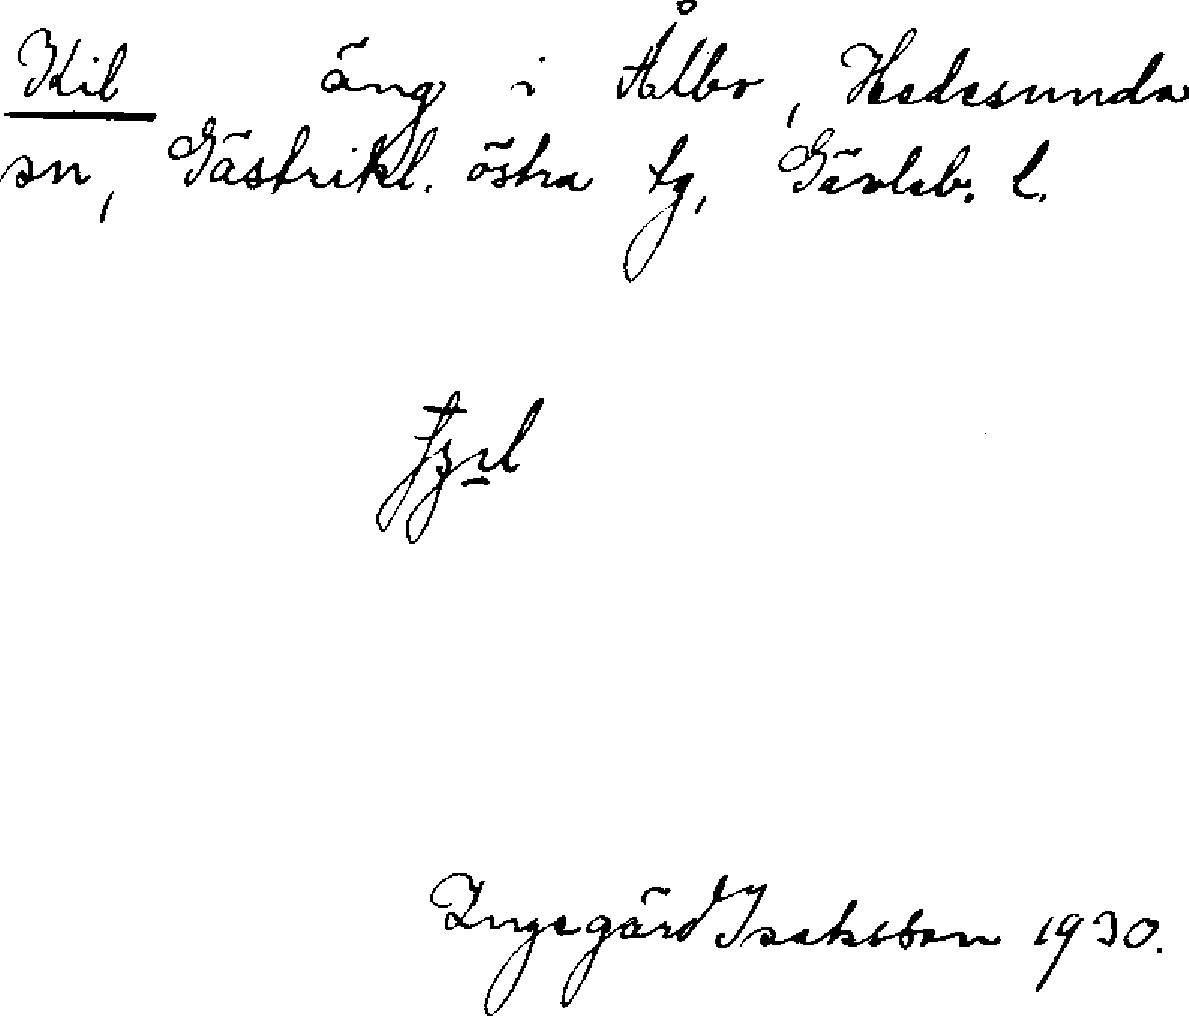 Kil äng i Ålbo, Hedesunda
sn, Gästrikl. östra tg, Gävleb. l.
Ingegärd Isaksson 1930.